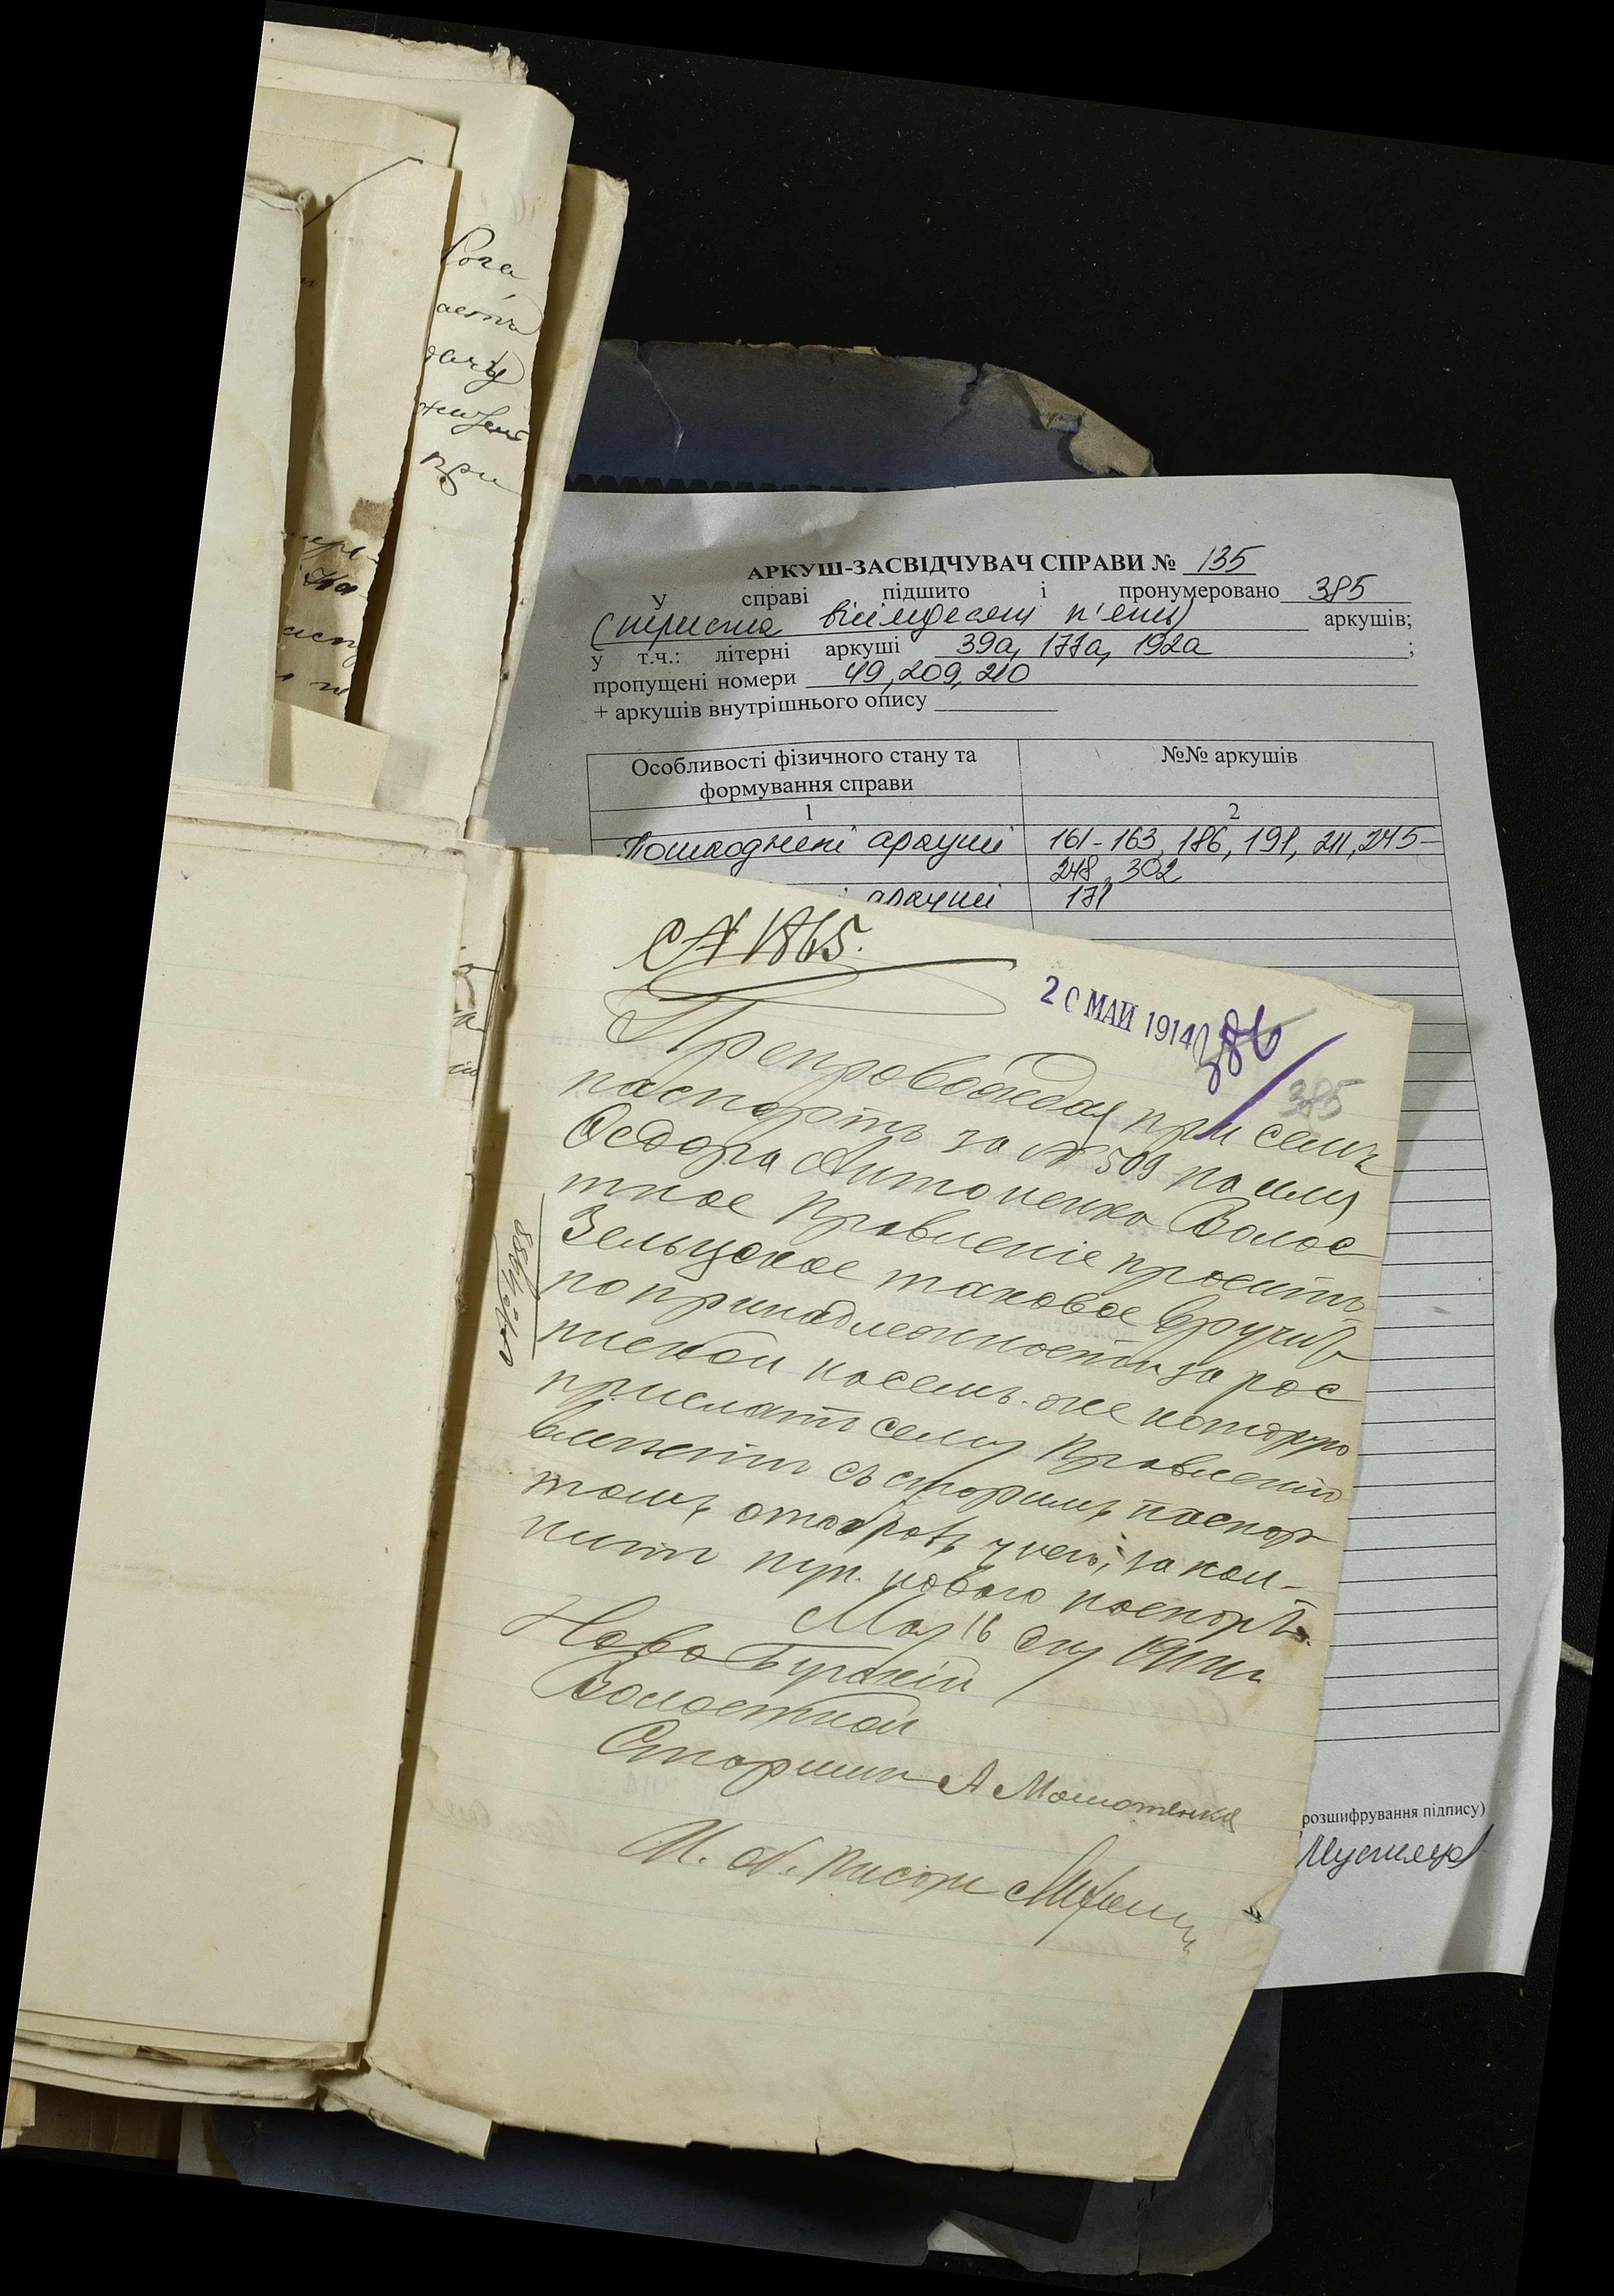 Рога
при
АРКУШ-ЗАСВІДЧУВАЧ СПРАВИ № 135
У справі підшито і пронумеровано 385
(триста вісімдесят п'ять) аркушів;
у т.ч.: літерні аркуші 39а, 171а, 192а ;
пропущені номери 49, 209, 210
+ аркушів внутрішнього опису
Особливості фізичного стану та формування справи
№№ аркушів
1
2
Пошкоджені аркуші
161-163, 186, 191, 211, 245-
248, 302
аркуші
171
№ 1865.
20 МАЙ 1914
386
385
Препровождая при семъ
паспортъ за № 509 на имя
Федора Антоненко Волос
тное правленіе проситъ
Зельцское таковое вручить
по принадлежности за рос
пиской на семъ-же которую
прислать сему правленію
вместе съ старымъ паспор
томъ отобравъ у него, за пол-
номъ нов. новаго паспорта.
Мая 16 дня 1914 г.
Ново Бугскій
Волостной
Старшина А Мошотенко
И. д. писаря
розшифрування підпису)